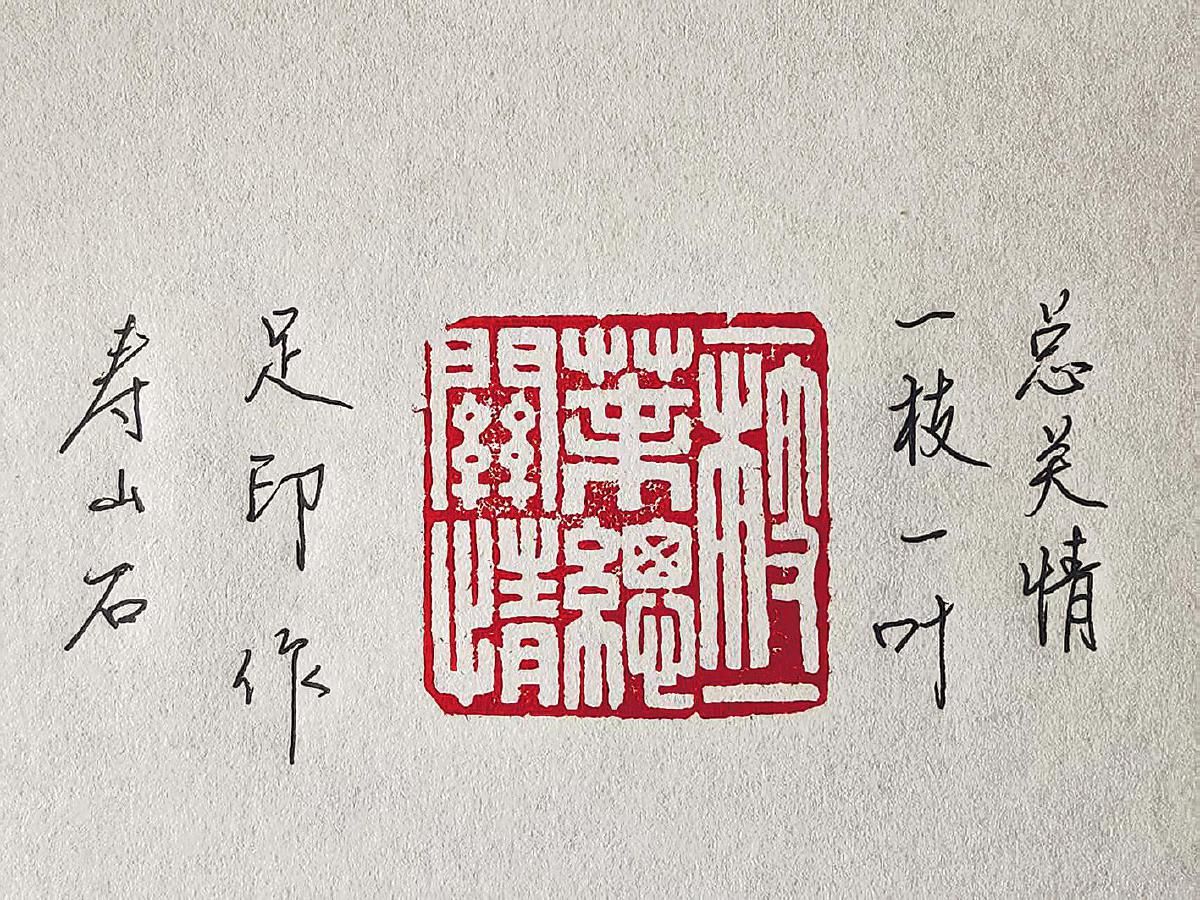 一枝一叶
总关情
一枝一
葉總
關情
足印作
寿山石